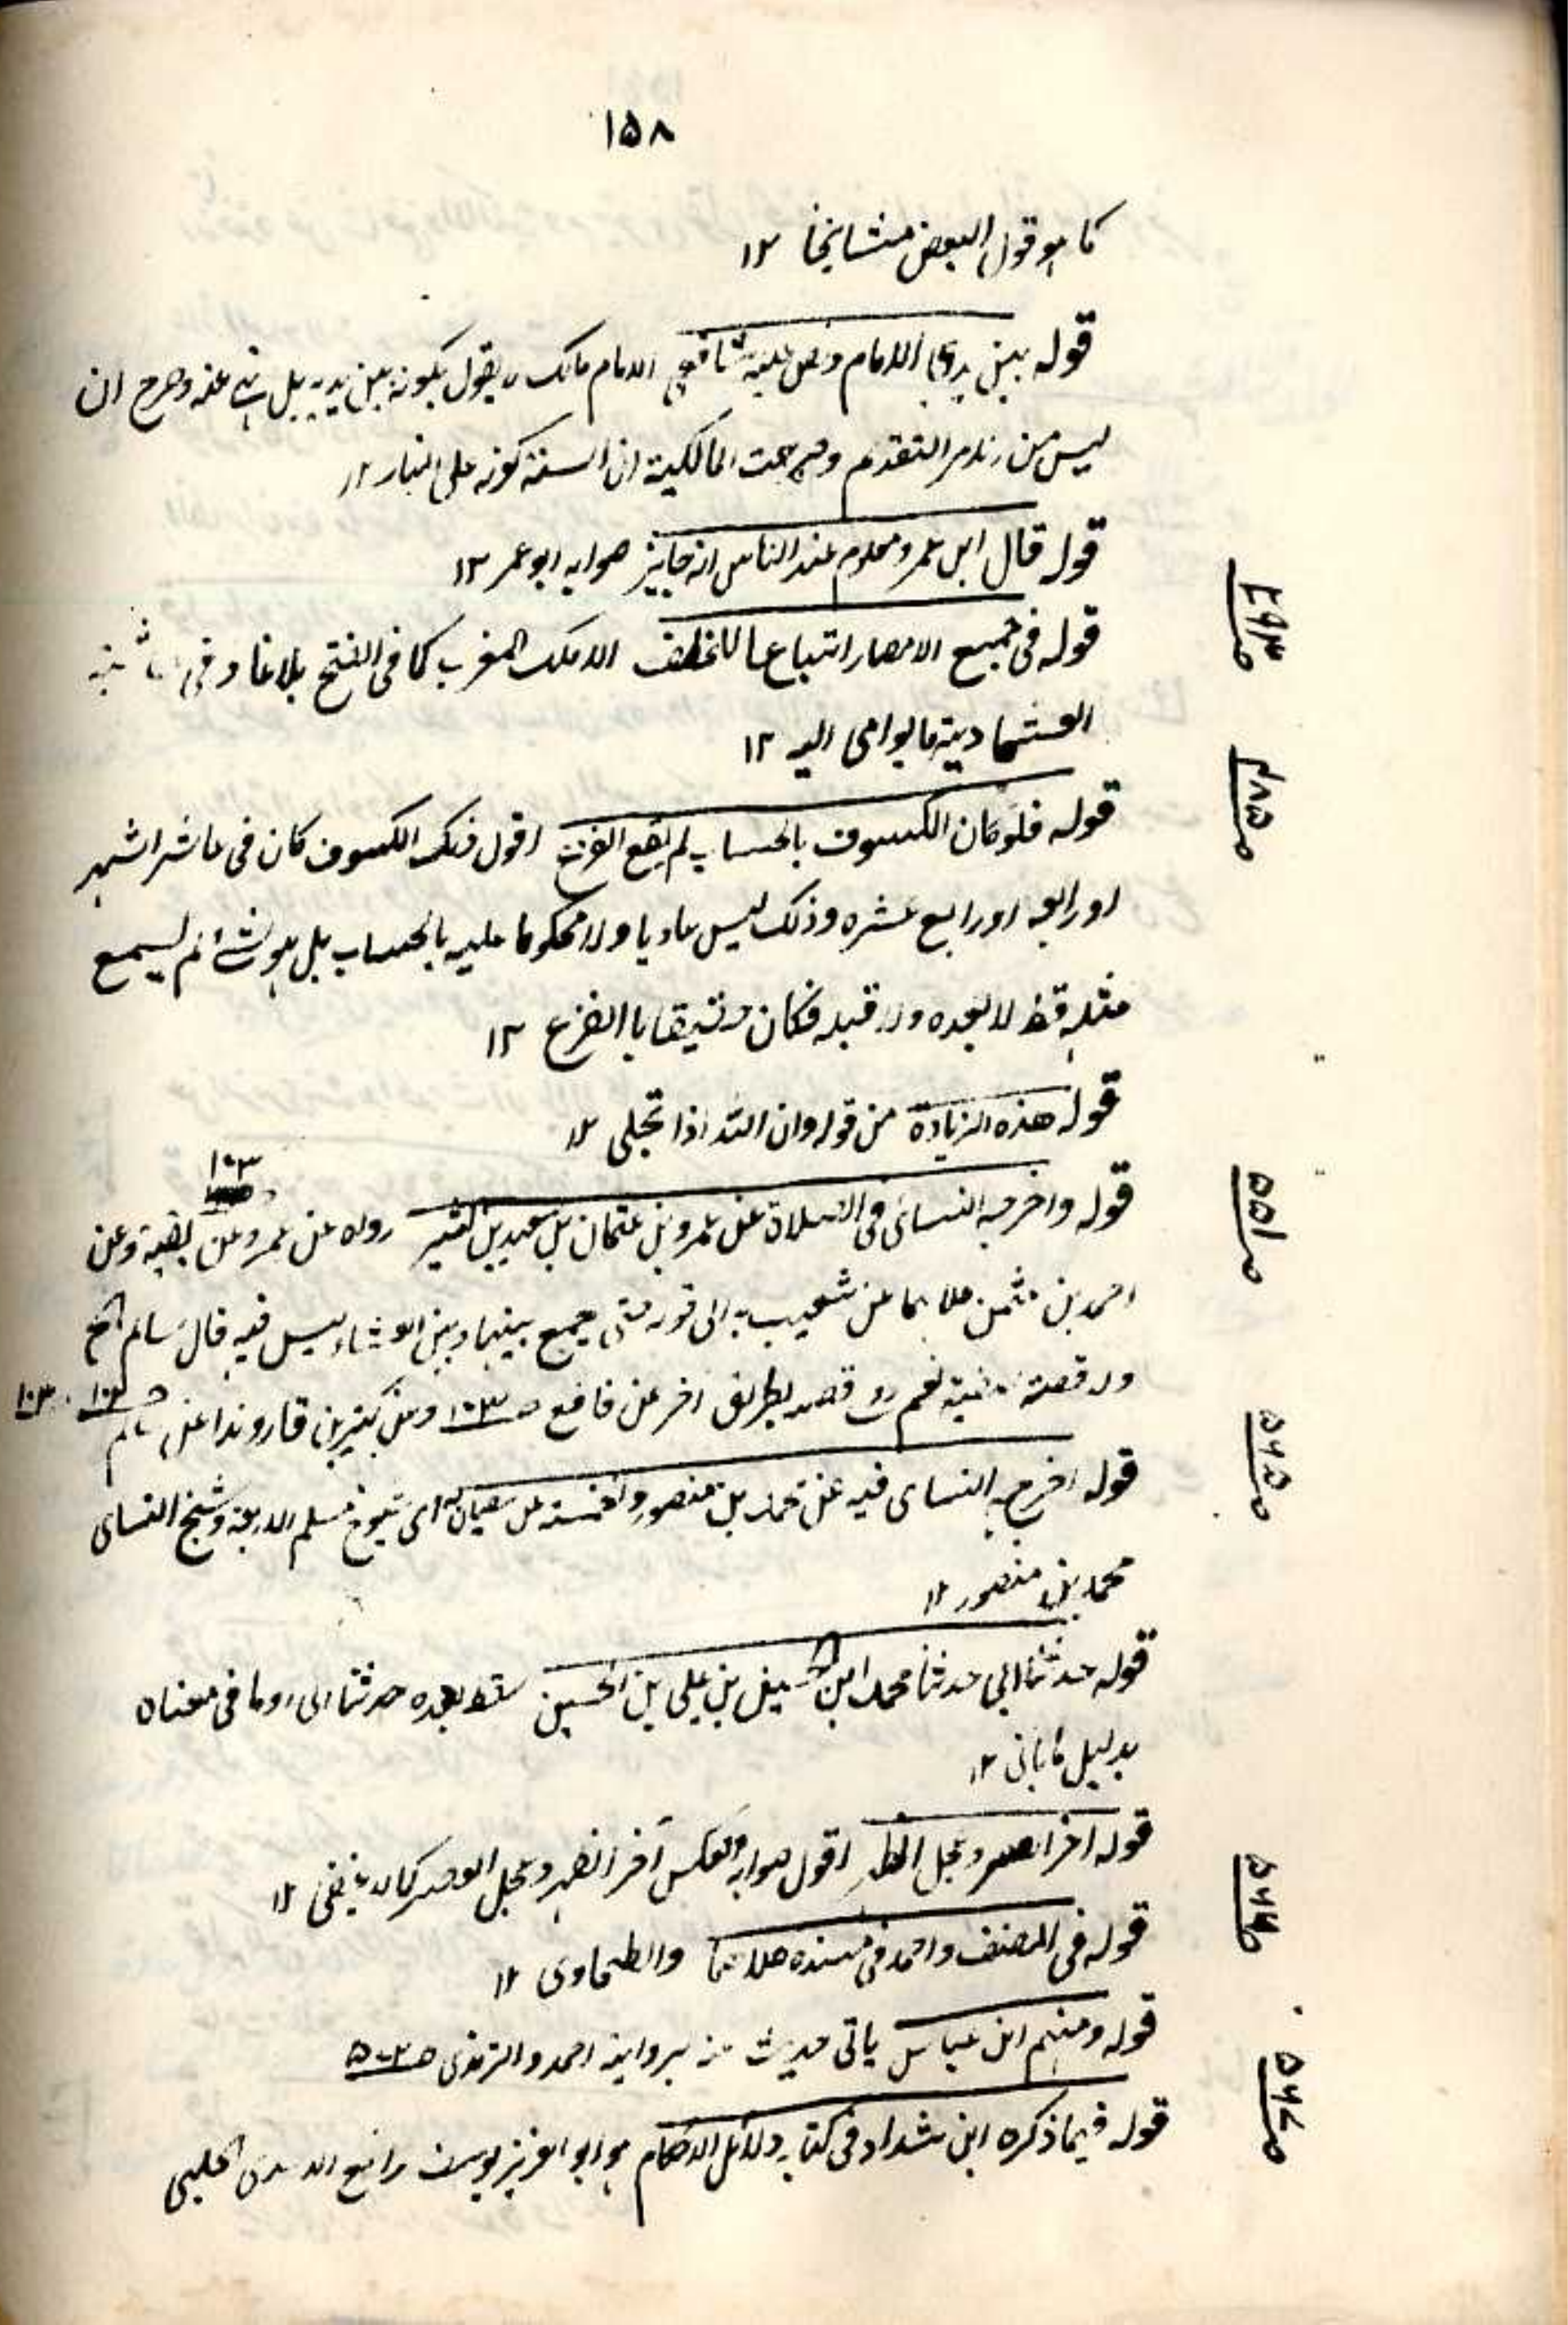 ١٥٨
كما هو قول البعض مشايخنا ١٢
قوله بين يدى الامام ونص عليه شافعى الامام مالك لا يقول بكونه بين يديه بل نهى عنه وصرح ان
ليس من الامر التقدم وصرحت المالكية ان السنة كونه على المنار ١٢
قوله قال ابن عمر ومعلوم عند الناس انه جايز صوابه ابو عمر ١٢
صـ ٤٩٣
قوله فى جميع الامصار اتباعا للخلف الا ملك المغرب كما فى الفتح بلاغا وفى
العشماوية ما يوامى اليه ١٢
صـ ٤٨٥
قوله فلو كان الكسوف بالحساب لم يقع الفزع اقول فلك الكسوف كان فى عاشر الشهر
او رابعه او رابع عشره وذلك ليس عاديا ولا محكوما عليه بالحساب بل هو شئ لم يسمع
مثله قط لا بعده ولا قبله فكان حقيقا باالفزع ١٢
قوله هذه الزيادة من قوله وان الله اذا تجلى ١٢
صـ ٥٥١
١٠٣
قوله واخرجه النسائى فى الصلاة عن عمرو بن عثمان بن سعيد بن كثير رواه عن عمرو عن بقية وعن
احمد بن كلاهما عن شعيب به الى قوله حتى جمع بينهما وبين العشاء ليس فيه قال سالم الخ
ولا قصة صفية نعم روى قصه بطريق اخر عن نافع صـ ١٠٣ وعن كثير بن قاروندا عن سالم صـ ١٠٢ ، ١٠٣
صـ ٥٦٥
قوله اخرجه النساى فيه عن محمد بن منصور وخمسته عن سفيان به اى شيوخ مسلم الاربعة وشيخ النساى
محمد بن منصور ١٢
قوله حدثنا ابى حدثنا محمد ابن الحسين بن على بن الحسين سقط بعده حدثنا ابى او ما فى معناه
بدليل ماياتى ١٢
قوله اخر العصر وعجل الظهر اقول صوابه والعكس آخر الظهر وعجل العصر كما لا يخفى ١٢
صـ ٥٦٦
قوله فى المصنف واحمد فى مسنده كلاهما والطحاوى ١٢
قوله ومنهم ابن عباس ياتى حديث منه برواية احمد والترمذى صـ ٥٧٣
صـ ٥٦٧
قوله فيما ذكره ابن شداد فى كتابه دلائل الاحكام هو ابو العزيز يوسف رافع الاسدى الحلبى